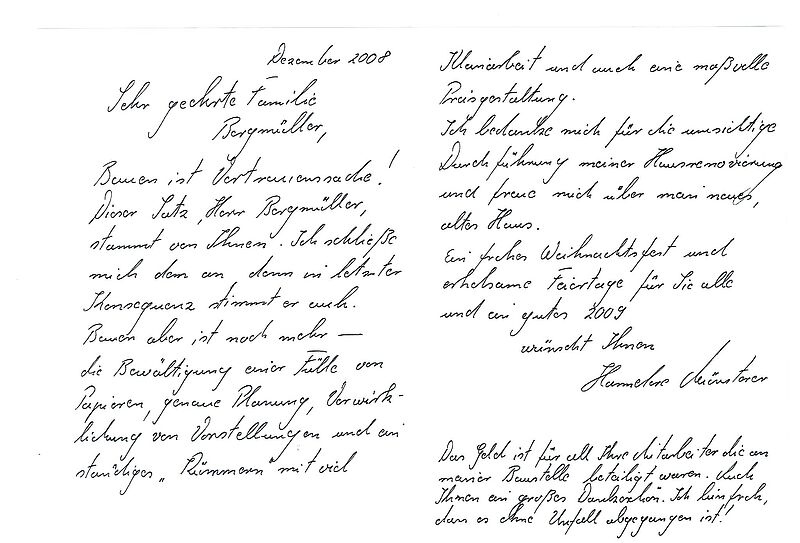 Dezember 2008
Sehr geehrte Familie
Bergmüller,
Bauen ist Vertrauenssache!
Dieser Satz, Herr Bergmüller,
stammt von Ihnen. Ich schließe
mich dem an, denn in letzter
Konsequenz stimmt er auch.
Bauen aber ist noch mehr —
die Bewältigung einer Fülle von
Papieren, genaue Planung, Verwirk-
lichung von Vorstellungen und ein
ständiges „Kümmern" mit viel
Kleinarbeit und auch eine maßvolle
Preisgestaltung.
Ich bedanke mich für die umsichtige
Durchführung meiner Hausrenovierung
und freue mich über mein neues,
altes Haus.
Ein frohes Weihnachtsfest und
erholsame Feiertage für Sie alle
und ein gutes 2009
wünscht Ihnen
Hannelore Münsterer
Das Geld ist für all Ihre Mitarbeiter die an
meiner Baustelle beteiligt waren. Auch
Ihnen ein großes Dankeschön. Ich bin froh,
dass es ohne Unfall abgegangen ist!